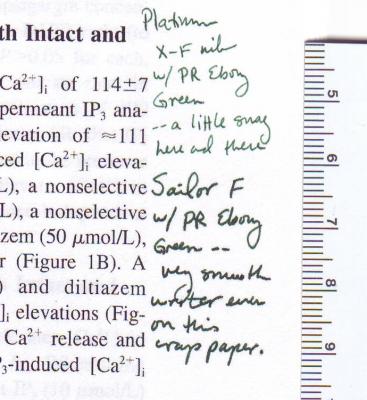 th Intact and
Ca²⁺]ᵢ of 114±7
permeant IP₃ ana-
levation of ≈111
ced [Ca²⁺]ᵢ eleva-
L), a nonselective
L), a nonselective
azem (50 μmol/L),
r (Figure 1B). A
) and diltiazem
]ᵢ elevations (Fig-
Ca²⁺ release and
P₃-induced [Ca²⁺]ᵢ
Platinum
X-F nib
w/ PR Ebony
Green
-- a little snag
here and there
Sailor F
w/ PR Ebony
Green --
very smooth
writer even
on this
crap paper.
5
6
7
8
9